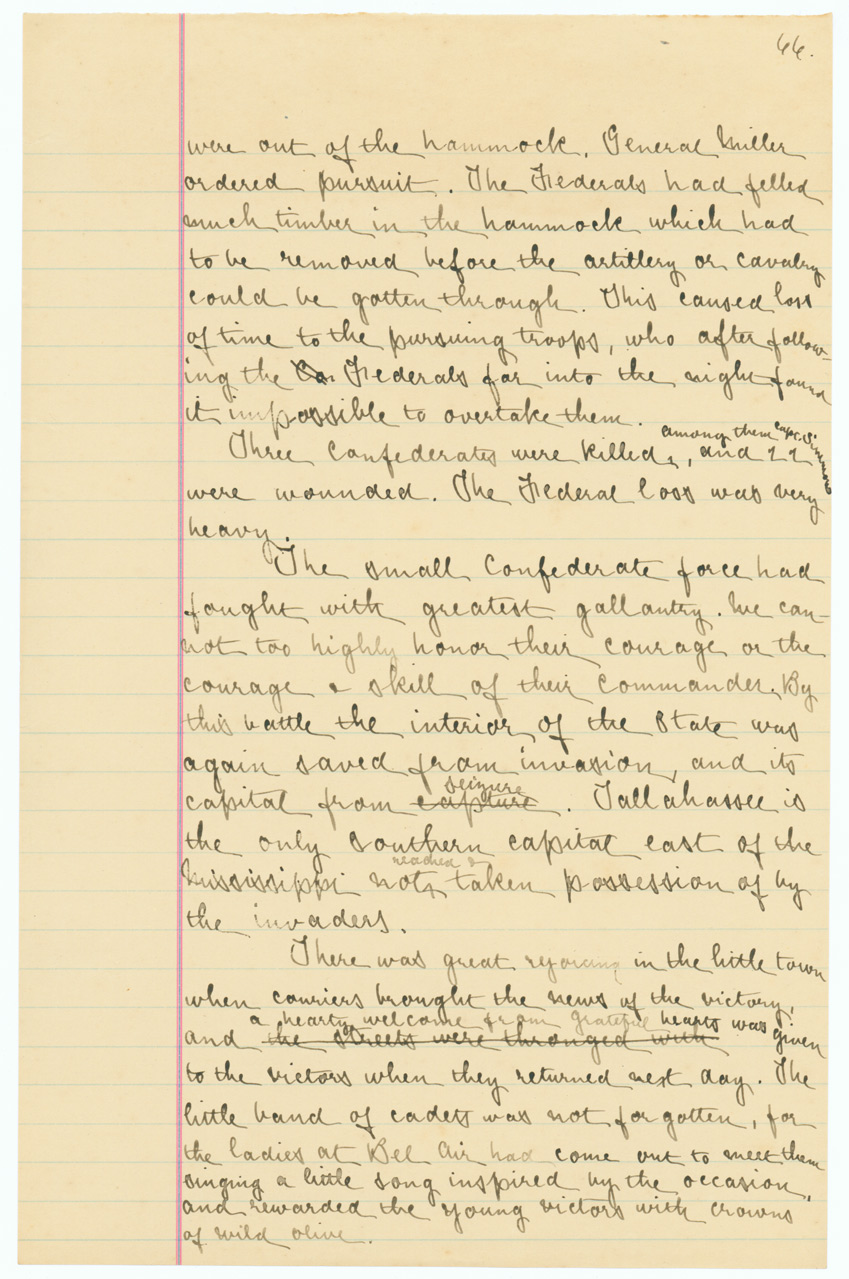 66.
were out of the hammock. General Miller
ordered pursuit. The Federals had felled
much timber in the hammock which had
to be removed before the artillery or cavalry
could be gotten through. This caused loss
of time to the pursuing troops, who after follow-
ing the Federals far into the night found
it impossible to overtake them.
among them Capt. Simmons
Three Confederates were killed, and 22
were wounded. The Federal loss was very
heavy.
The small Confederate force had
fought with greatest gallantry. We can-
not too highly honor their courage or the
courage & skill of their commander. By
this battle the interior of the State was
again saved from invasion, and its
seizure
capital from capture. Tallahassee is
the only Southern capital east of the
reached &
Mississippi not taken possession of by
the invaders.
There was great rejoicing in the little town
when couriers brought the news of the victory,
a hearty welcome from grateful hearts was given
and the streets were thronged with
to the victors when they returned next day. The
little band of cadets was not forgotten, for
the ladies at Bel Air had come out to meet them
singing a little song inspired by the occasion,
and rewarded the young victors with crowns
of wild olive.